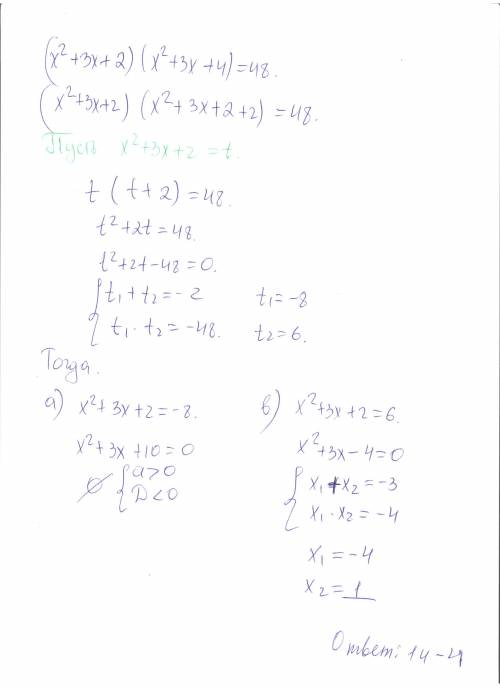 (x²+3x+2)(x²+3x+4)=48.
(x²+3x+2)(x²+3x+2+2)=48.
Пусть x²+3x+2=t.
t(t+2)=48.
t²+2t=48.
t²+2t-48=0.
{t₁+t₂=-2 t₁=-8
{t₁·t₂=-48. t₂=6.
Тогда.
а) x²+3x+2=-8.
x²+3x+10=0
∅ {a>0
D<0
в) x²+3x+2=6.
x²+3x-4=0
{x₁+x₂=-3
x₁·x₂=-4
x₁=-4
x₂=1
Ответ: 1и-4